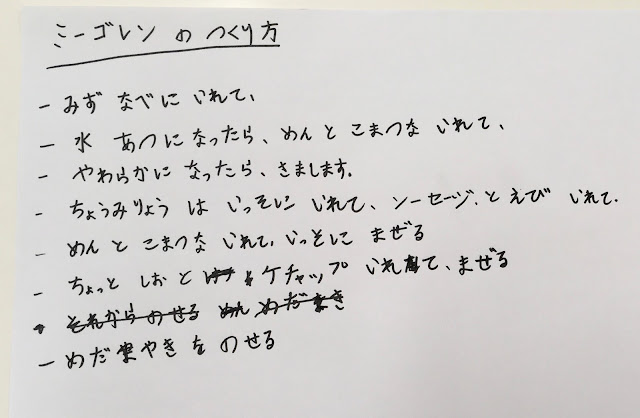 ミーゴレン の つくり方
- みず なべに いれて、
- 水 あつに なったら、めん と こまつな いれて、
- やわらかに なったら、さまします。
- ちょうみりょう は いっそに いれて、ソーセージ、と えび いれて.
- めん と こまつな いれて、いっそに まぜる
- ちょっと しお と ケチャップ いれて、まぜる
それから のせる めん めだまき
- めだまやき を のせる